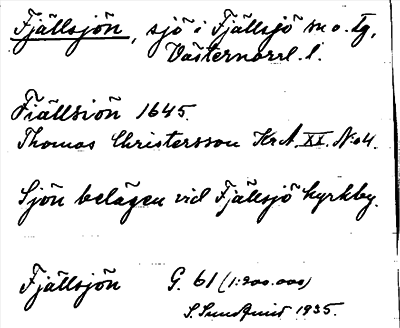 Fjällsjön, sjö i Fjällsjö sn o. tg,
Västernorrl. l.
Fiällsiön 1645.
Thomas Christersson KrA. XX. N:o 4.
Sjön belägen vid Fjällsjö kyrkby.
Fjällsjön G. 61 (1:200.000)
S. Sundquist 1935.